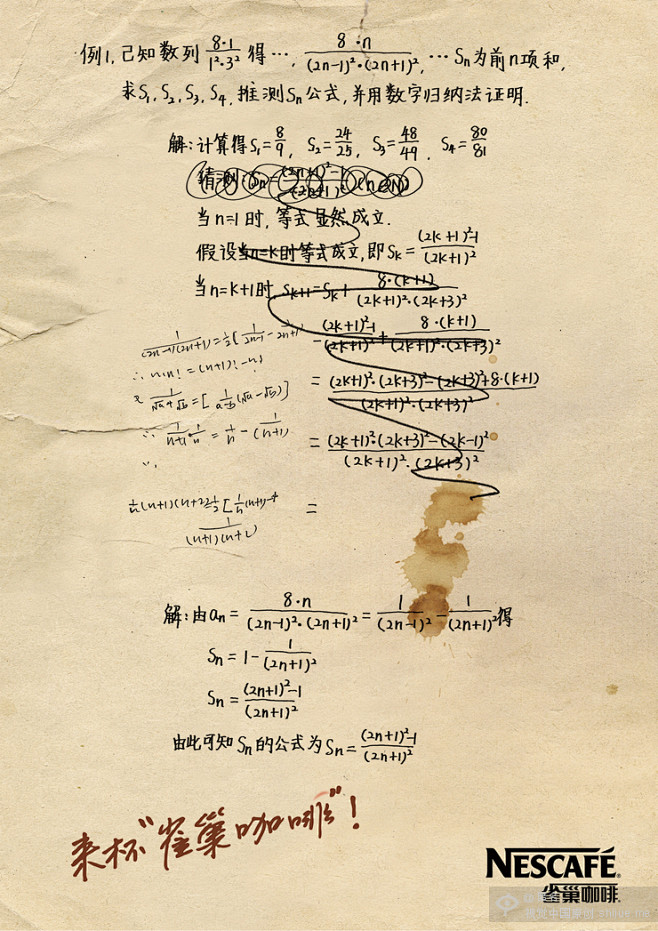 例1.己知数列 8·1/1²·3² 得…, 8·n/(2n-1)²·(2n+1)², …Sn为前n项和,
求S₁,S₂,S₃,S₄,推测Sn公式,并用数字归纳法证明.
解:计算得S₁=8/9, S₂=24/25, S₃=48/49, S₄=80/81
猜测:Sn=(2n+1)²-1/(2n+1)² (n∈N)
当n=1时,等式显然成立.
假设当n=k时等式成立,即Sk=(2k+1)²-1/(2k+1)²
当n=k+1时 Sk+1=Sk+8·(k+1)/(2k+1)²·(2k+3)²
=(2k+1)²-1/(2k+1)²+8·(k+1)/(2k+1)²·(2k+3)²
=(2k+1)²·(2k+3)²-(2k+3)²+8·(k+1)/(2k+1)²·(2k+3)²
=(2k+1)²·(2k+3)²-(2k-1)²/(2k+1)²·(2k+3)²
=
1/(2n-1)(2n+1)=1/2[1/2n-1-1/2n+1]
∴n·n!=(n+1)!-n!
∴1/n+1·1/n=1/n-(1/n+1)
解:由an=8·n/(2n-1)²·(2n+1)²=1/(2n-1)²-1/(2n+1)²得
Sn=1-1/(2n+1)²
Sn=(2n+1)²-1/(2n+1)²
由此可知Sn的公式为Sn=(2n+1)²-1/(2n+1)²
来杯“雀巢咖啡”!
NESCAFÉ®
雀巢咖啡.